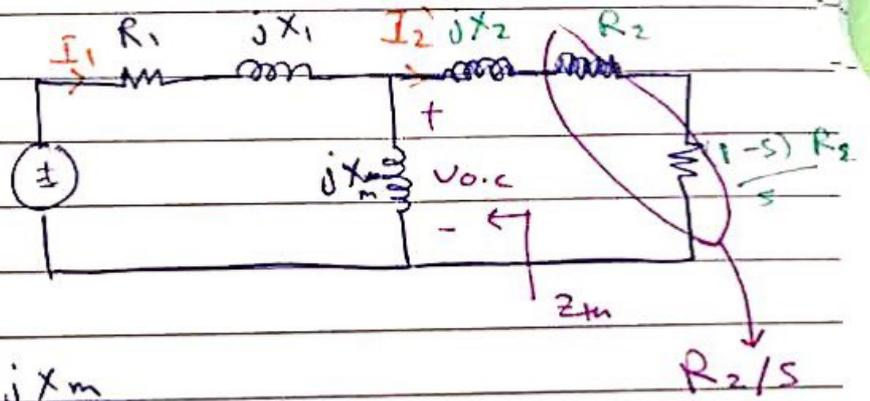 I₁ R₁ jX₁ I₂ jX₂ R₂
+
jXm Vo.c (1-S) R₂
s
-
Zth
R₂/S
jXm